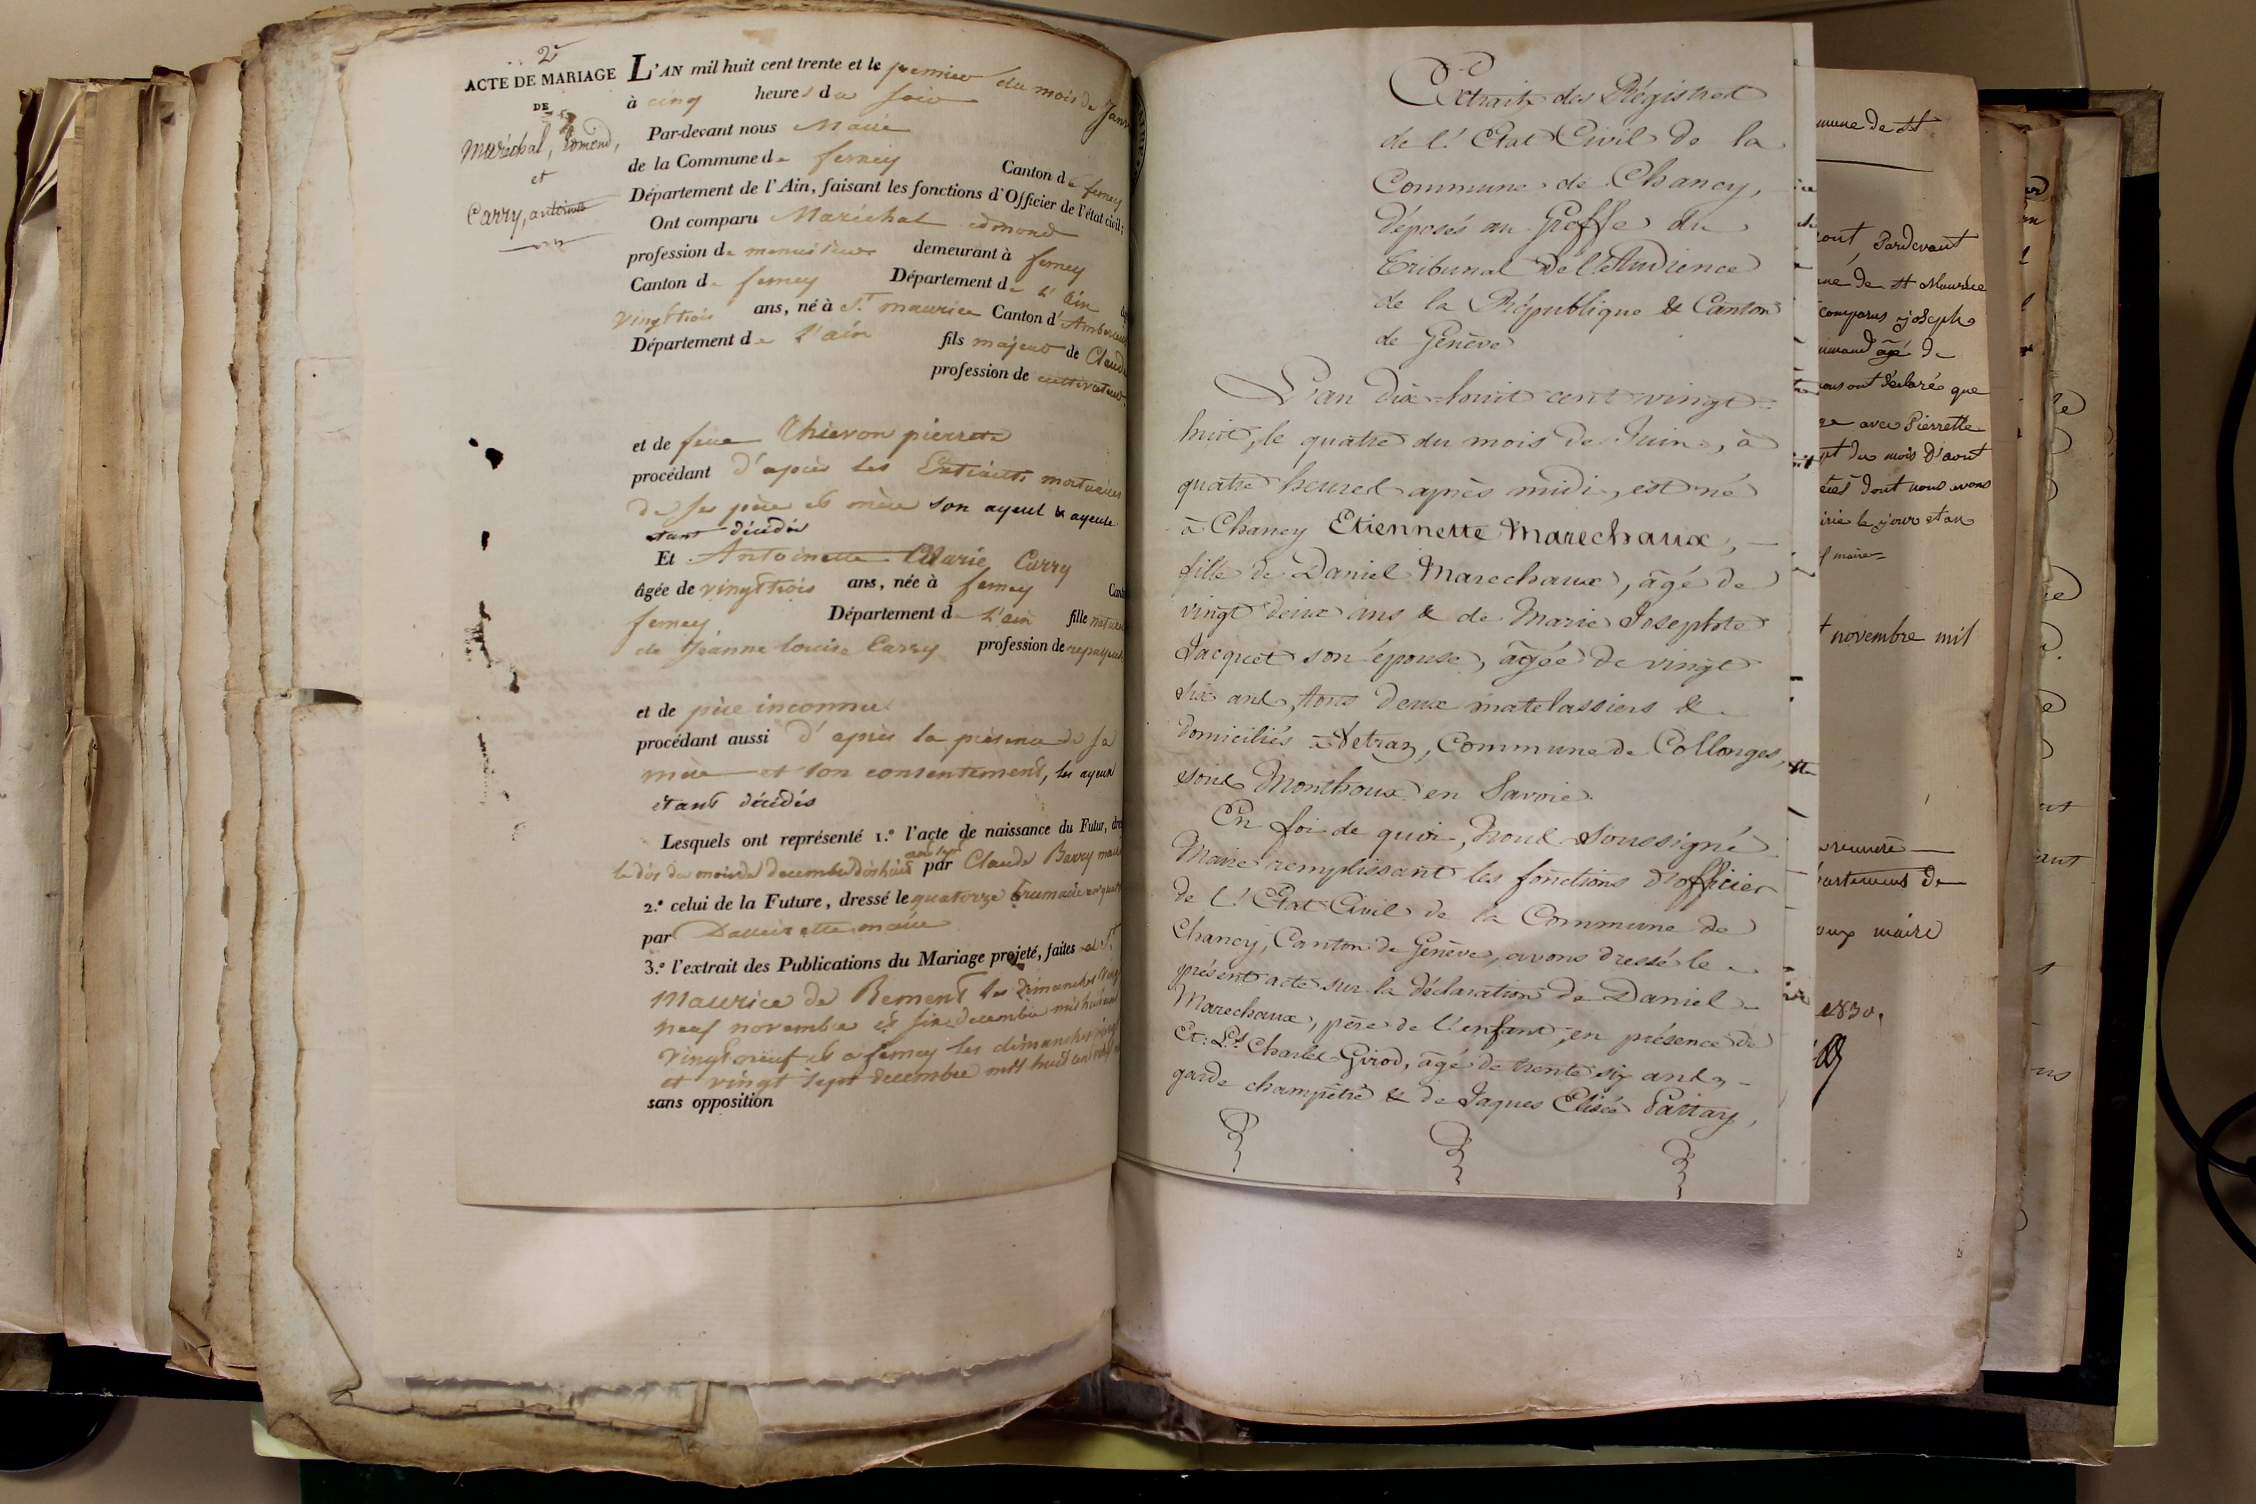 2e
ACTE DE MARIAGE
DE
Maréchal, Edmond,
et
Carry, antoinette
L'AN mil huit cent trente et le premier du mois de Janv
à cinq heures du soir
Par-devant nous Maire
de la Commune de ferney Canton de ferney
Département de l'Ain, faisant les fonctions d'Officier de l'état civil;
Ont comparu Maréchal edmond
profession de menuisier demeurant à ferney
Canton de ferney Département de L'Ain
vingt trois ans, né à St. maurice Canton d'
Département de L'ain fils majeur de Claude
profession de cultivateur
et de feue Thievon pierrette
procédant d'après les Extraits mortuaires
de ses père et mère son ayeul & ayeule
étant décédés
Et Antoinette Marie Carry
âgée de vingt trois ans, née à ferney Cant
ferney Département de L'ain fille naturelle
de Jeanne Louise Carry profession de
et de père inconnu
procédant aussi d'après la présence de sa
mère et son consentement, les ayeux
étant décédés
Lesquels ont représenté 1.° l'acte de naissance du Futur, dre
le dix du mois de decembre dix huit cent six par Claude Berry maire
2.° celui de la Future, dressé le quatorze brumaire an quato
par maire
3.° l'extrait des Publications du Mariage projeté, faites a St
Maurice de Rement les Dimanches vingt
neuf novembre et six decembre mil huit cent
vingt neuf et a ferney les dimanches vingt
et vingt sept decembre mil huit cent vingt
sans opposition
Extrait des Régistres
de l'Etat Civil de la
Commune de Chancy,
déposés au Greffe du
Tribunal de l'Audience
de la République & Canton
de Genève
L'an Dix-huit cent vingt=
huit, le quatre du mois de Juin, à
quatre heures après midi, est né
à Chancy Etiennette Marechaux, —
fille de Daniel Marechaux, âgé de
vingt deux ans & de Marie Josephte
Jacquet son épouse, âgée de vingt
six ans, tous deux matelassiers &
domiciliés à Vetraz, Commune de Collonges,
sous Monthoux en Savoie.
En foi de quoi, Nous Soussigné
Maire remplissant les fonctions d'officier
de l'Etat Civil de la Commune de
Chancy, Canton de Genève, avons dressé le
présent acte sur la déclaration de Daniel
Marechaux, père de l'enfant, en présence de
Et: Ls Charles Girod, âgé de trente six ans, —
garde champêtre & de Jaques Elisée Pattay,
mune de St
out Pardevant
une de St Maurice
comparus joseph
âgé de
nous ont déclaré que
avec Pierrette
pt du mois d'aout
dont nous avons
irie le jour et an
maire
t novembre mil
partement de
oux maire
1830.